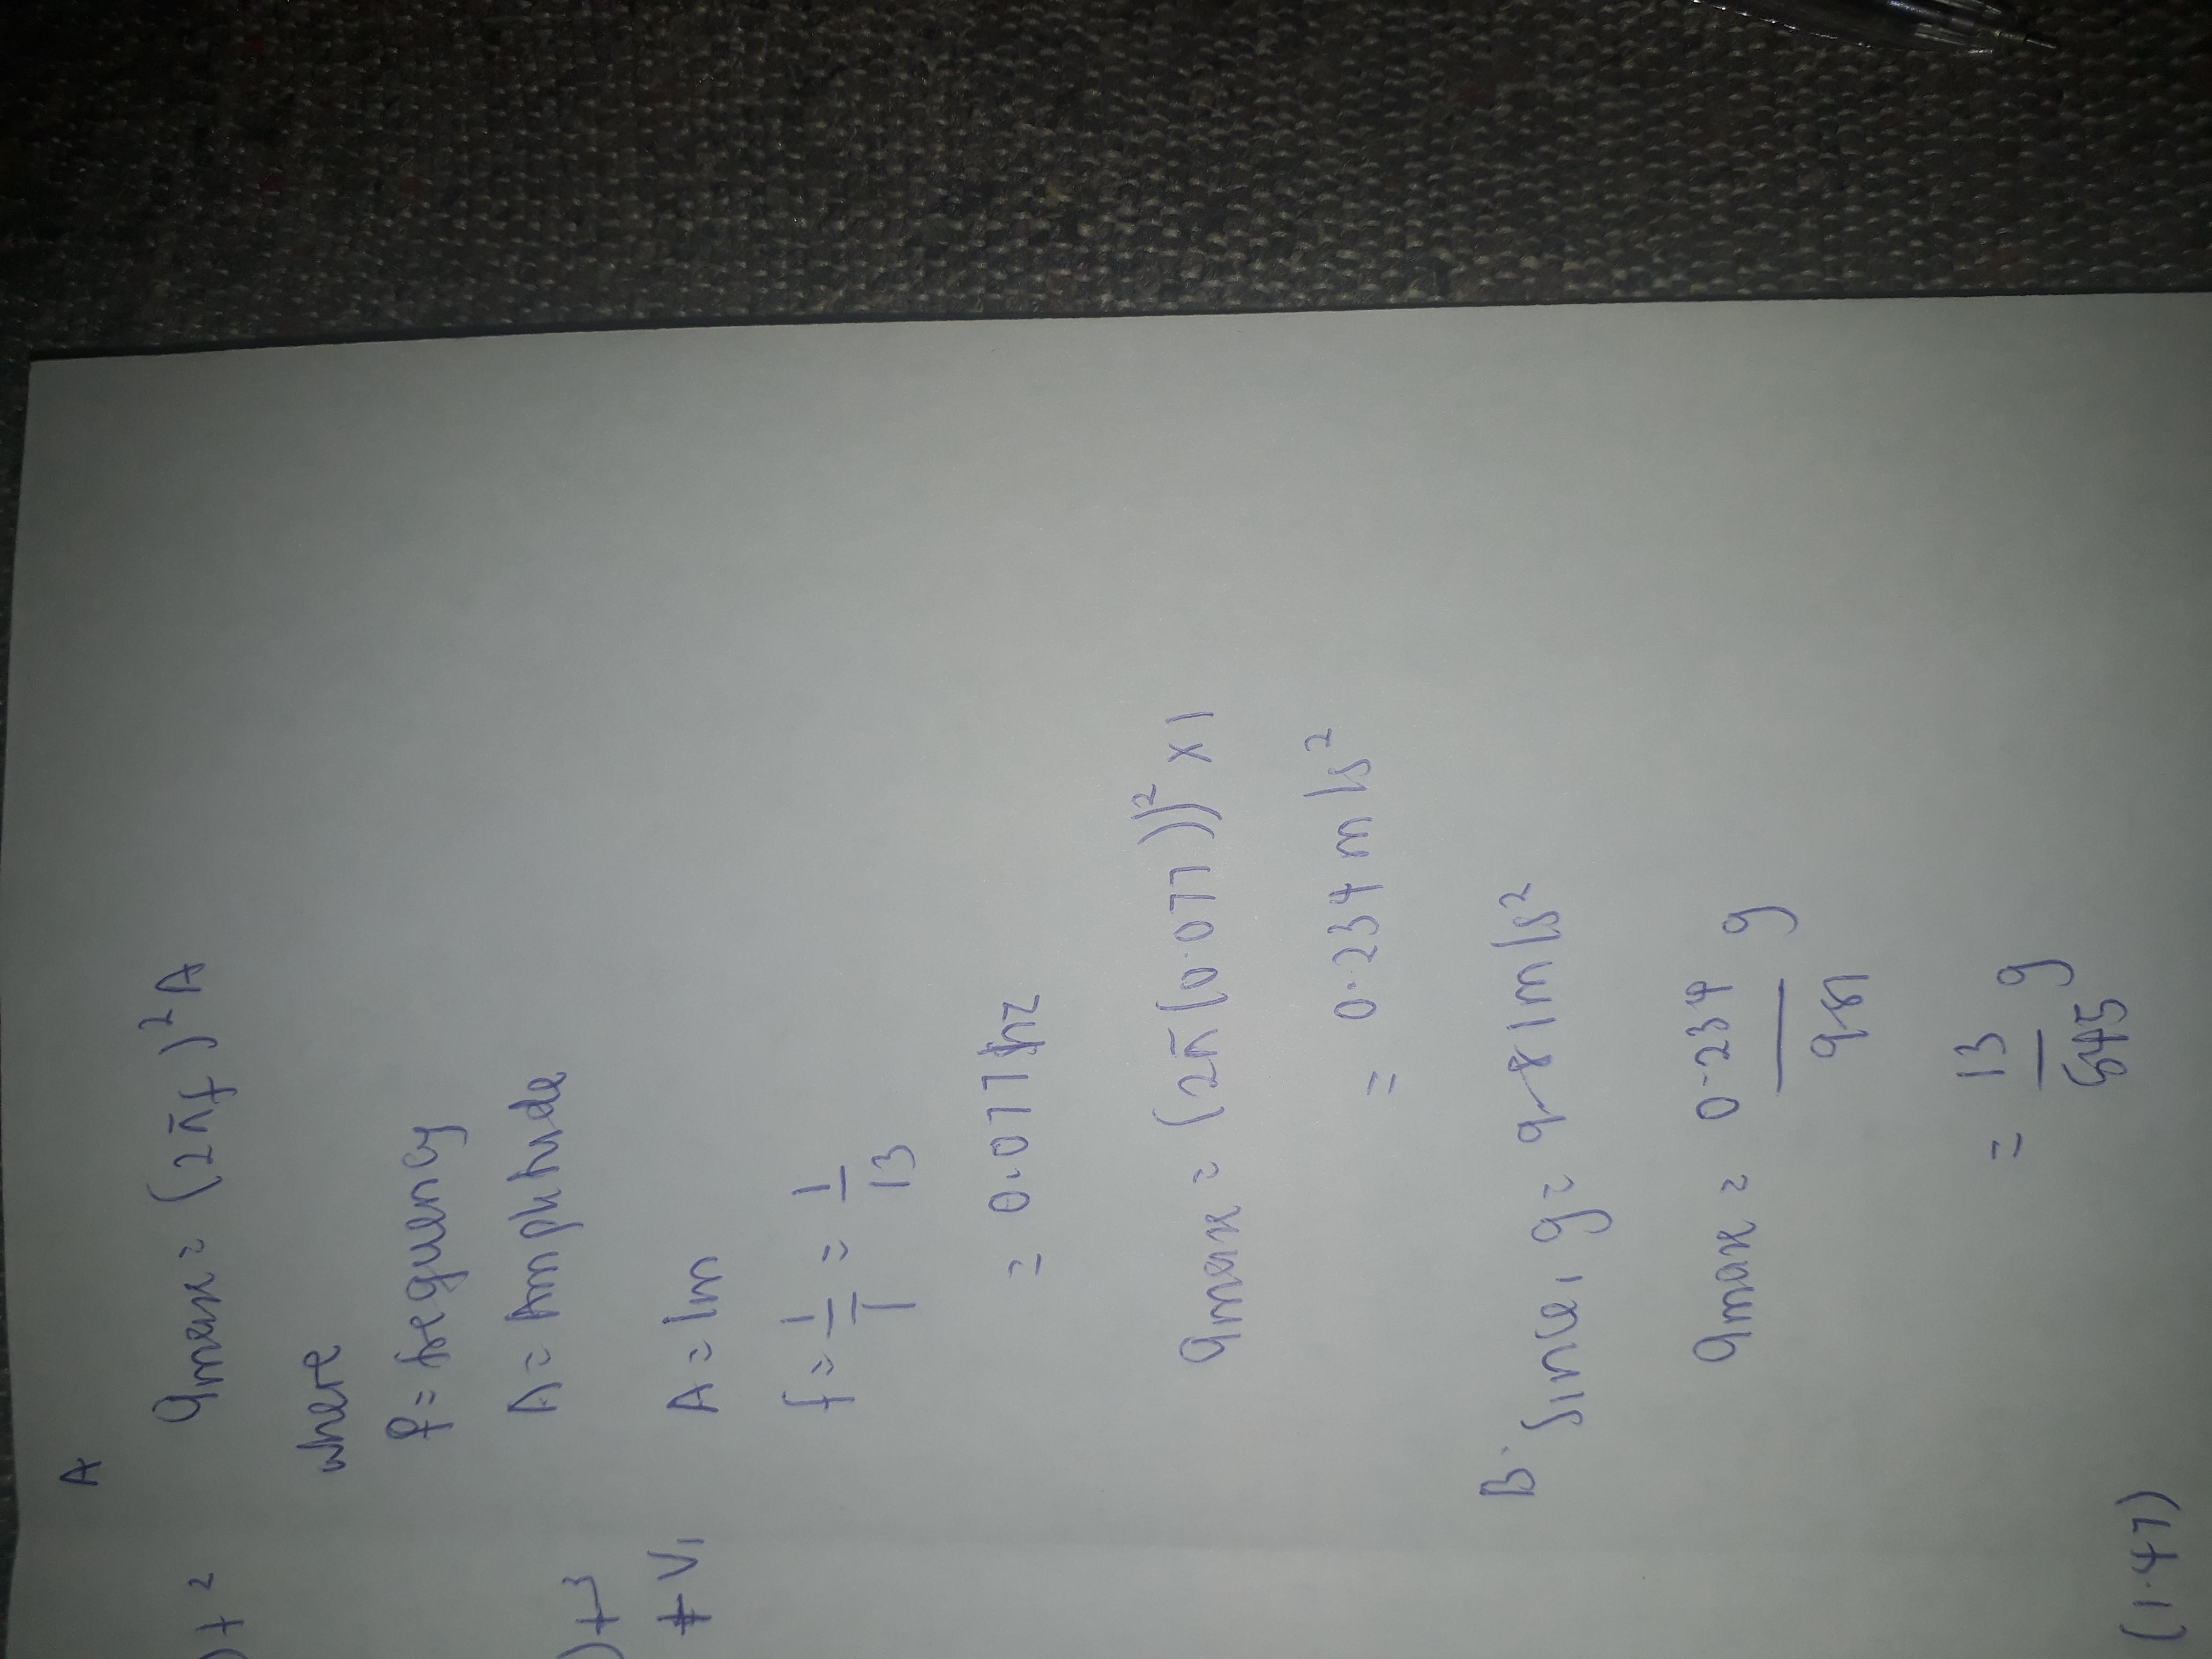 A
amax = (2πf)²A
where
f = frequency
A = Amplitude
A = 1m
f = 1/T = 1/13
= 0.077hz
amax = (2π(0.077))² x 1
= 0.234 m/s²
B. Since, g = 9.81m/s²
amax = 0.234/9.81 g
= 13/545 g
)t²
)t³
+ V₁
(1.47)